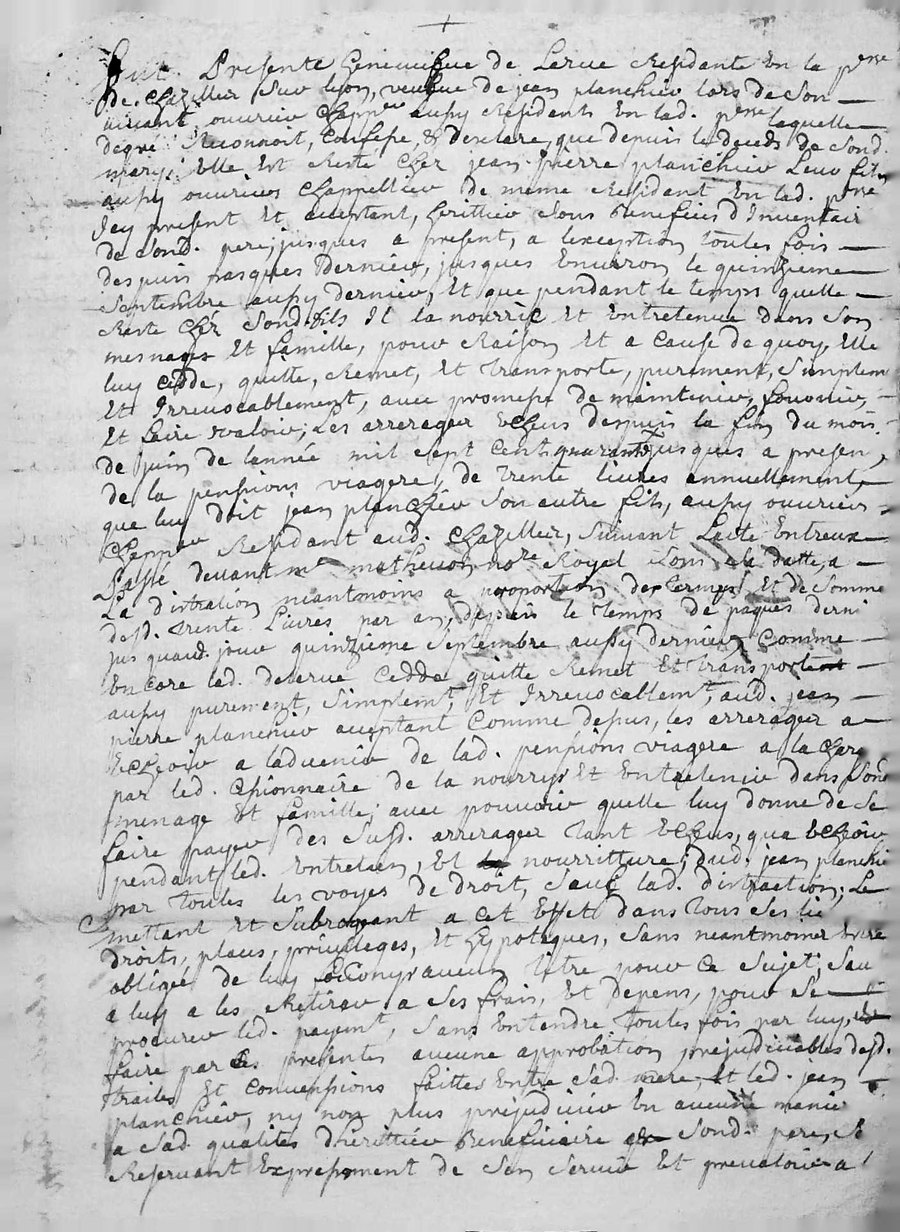 Fut Presente Genevieve de Lerue Residante En la pnne
de Chazelles Sur lyon, veufve de jean planchier lors de Son
vivant ouvrier Chapper aussy Residents En lad. pnne laquelle
degré Reconnoit, Confesse, & Desclare, que depuis le deceds de Sond.
mary, Elle Est Reste Chez jean pierre planchier Leur fils
aussy ouvrier Chappellier de meme Residant En lad. pnne
Icy present Et aceptant, heritier Sous Benefices d'Inventair
de Sond. pere, jusques a present, a lexception toutes fois
despuis pasques Dernier, jusques Environ le quinzieme
Septembre aussy dernier, Et que pendant le temps quelle
Reste Chéz Sond. fils Il la nourrie Et Entretenue dans Son
mesnages Et famille, pour Raison Et a Cause de quoy, Elle
luy Cedde, quitte, Remet, Et Transporte, purement, Simplem
Et Irrevocablement, avec promesse de maintenir, fournir,
Et faire valoir, Les arrerages Echeus despuis la fin du mois
de juin de lannée mil sept Cent quarante jusques a presen,
de la penssions viagere, de Trente livres annuellement,
que luy Doit jean planchier Son autre fils, aussy ouvrier
Chapper Residant aud. Chazelles, Suivant Lacte Entreux
Passé devant me matheuon nore Royal Sous Sa datte, a
La distration neantmoins a proportion des Termes Et de Somme
desd. Trente Livres par an, depuis le Temps de paques derni
jusquaud. jour quinzieme Septembre aussy dernier, Comme
Encore lad. delerue Cedde quitte Remet Et Transporte
aussy purement, Simplemt, Et Irrevocablemt, aud. jean
pierre planchier aceptant Comme depus, les arrerages a
Echeoir a ladvenir de lad. penssions viagere a la Charg
par led. Cessionnaire de la nourryr Et Entretenir dans Sond
menage Et famille, avec pouvoir quelle luy donne de Se
faire payer des Susd. arrerages tant Echeus, qua Echeoir
pendant led. Entretien, Et nourritture, Dud. jean planchie
par toutes les voyes de droit, Sauf lad. distraction, Le
mettant Et Subrogeant a cet Effet dans Tous Ses lie
droits, places, privileges, Et hypoteques, Sans neantmoins Estre
obligée de luy fournyr aucun Titre pour Ce Sujet, Sau
a luy a les Retirer a Ses frais, Et Depens, pour Se
procurer led. payemt, Sans Entendre toutes fois par luy,
faire par Ces presentes aucune approbation prejudiciables desd.
traités Et Conventions faittes Entre Sad. mere, Et led. jean
planchier, ny non plus prejudicier En aucune manie
a Sad. qualites dherittier Beneficiaire de Sond. pere, Se
Reservant Expressement de Sen Servir Et prevaloir a